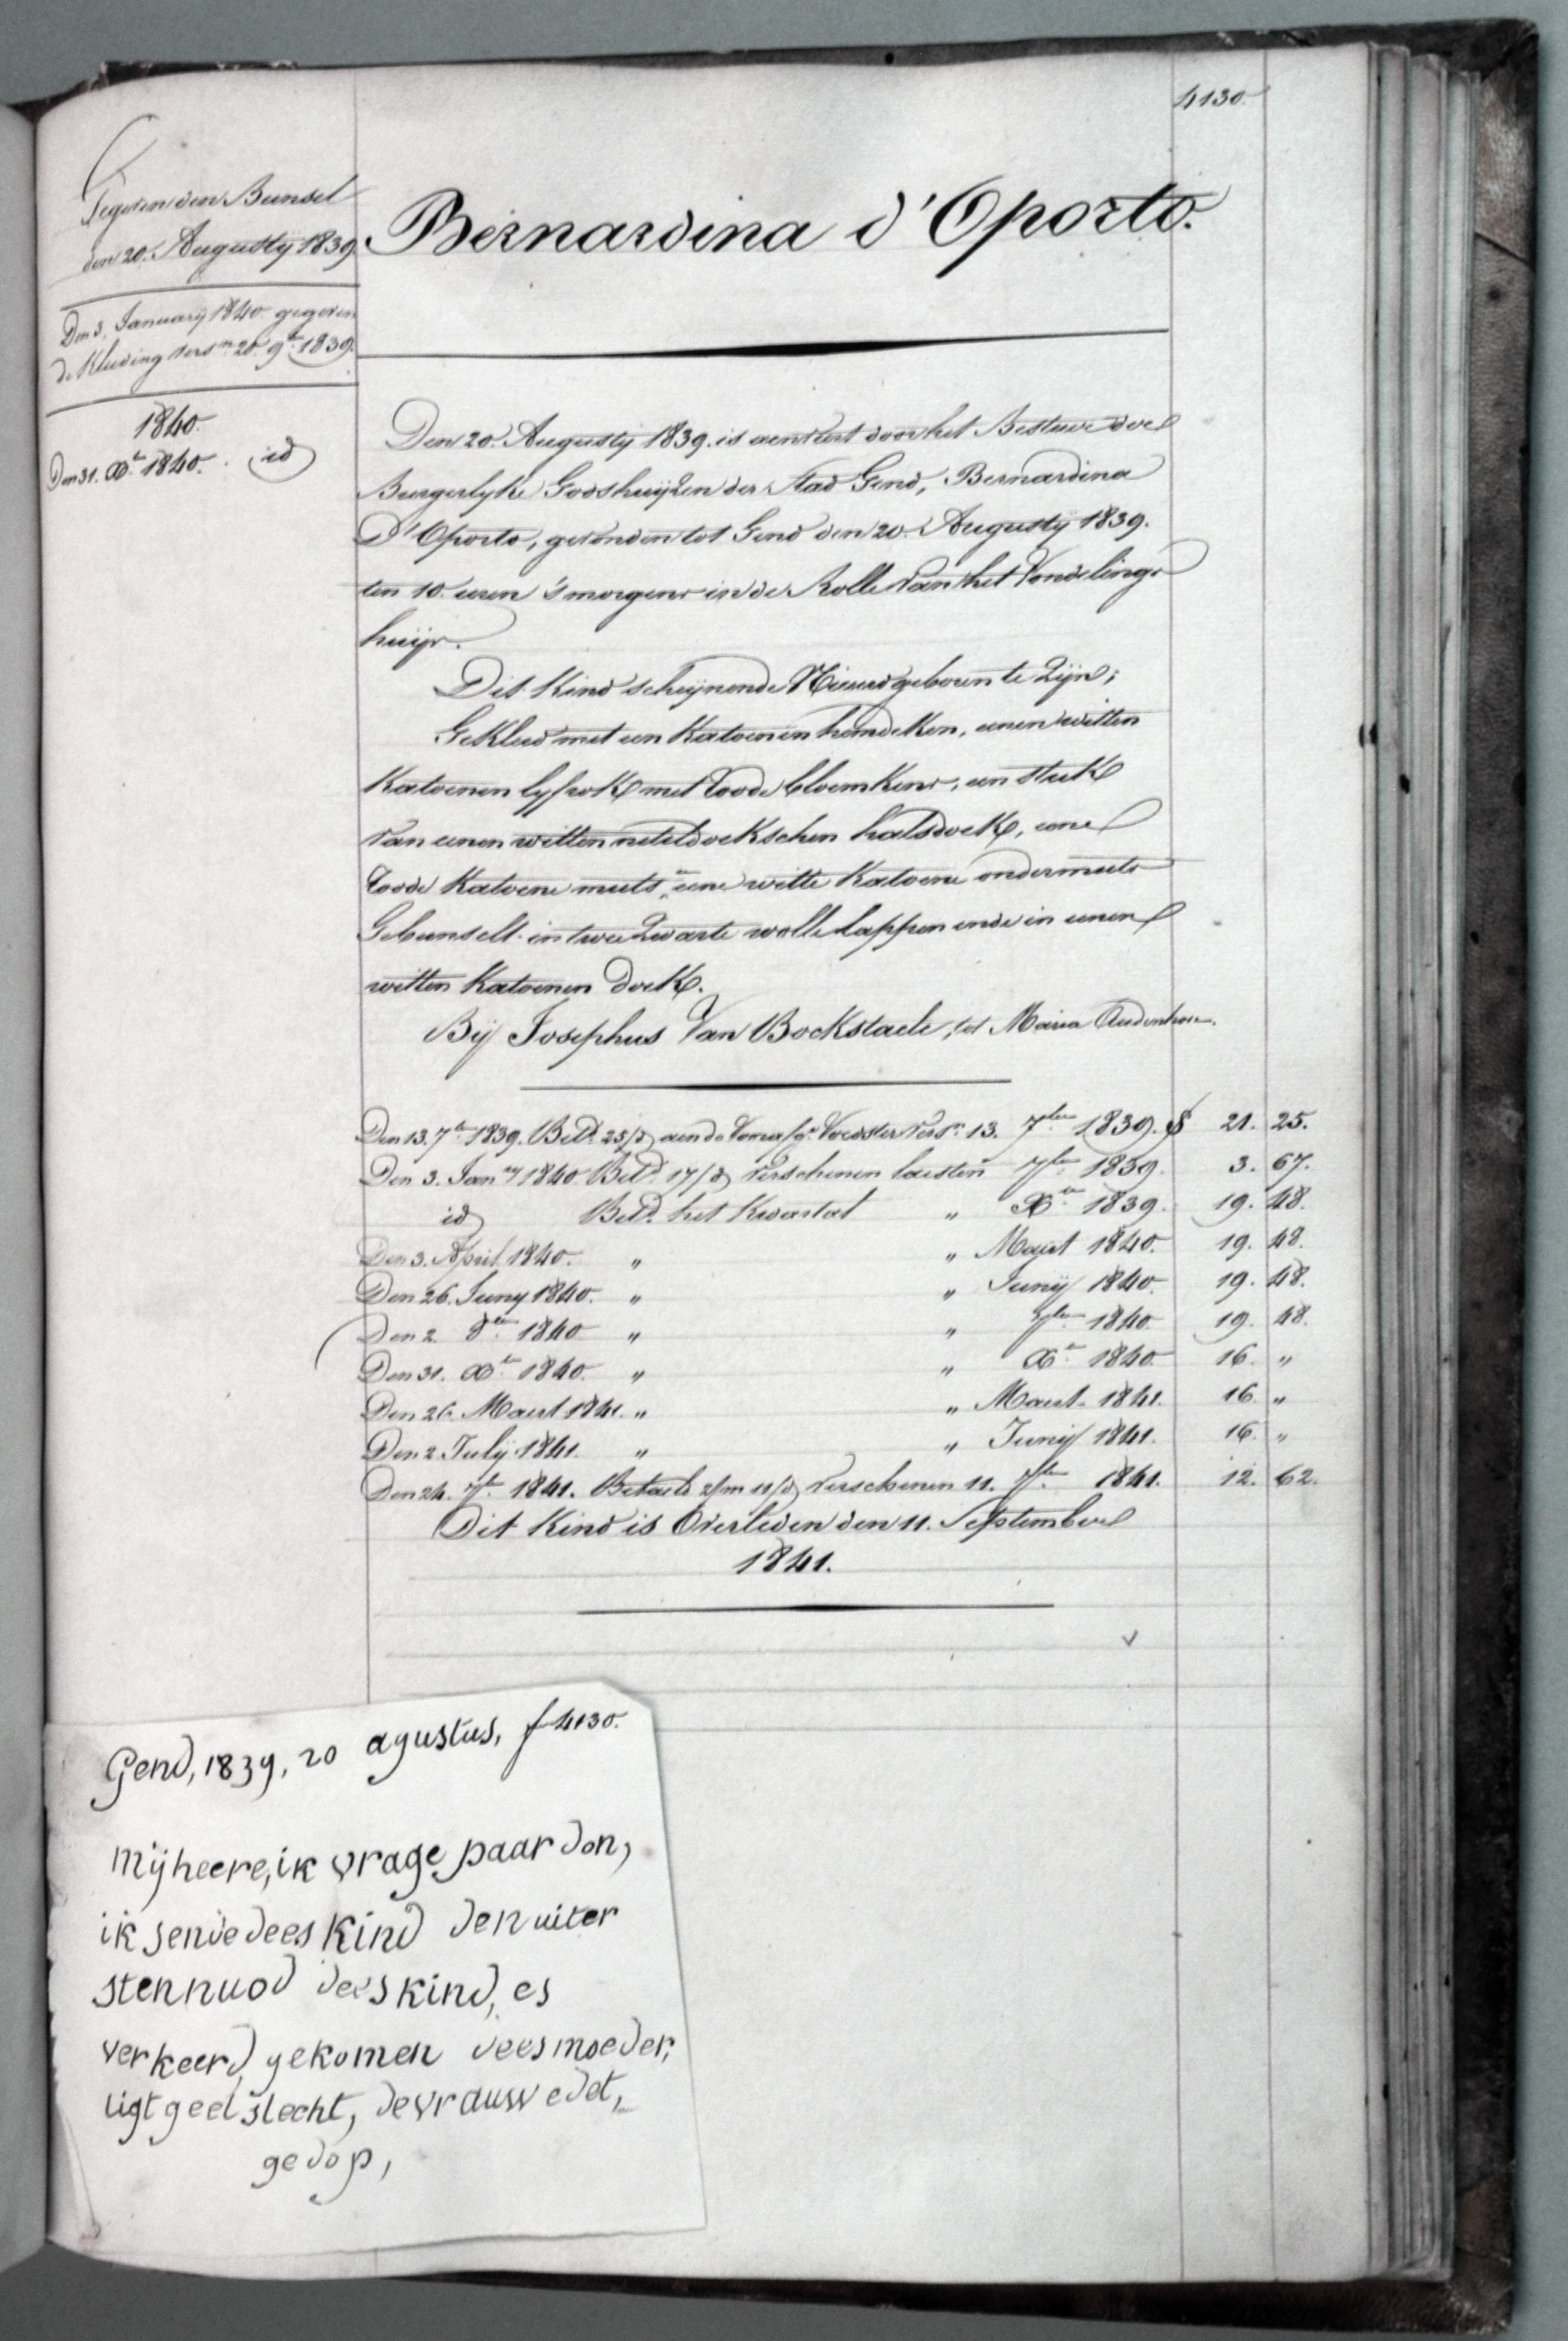 4130.
Gegeven den Bunsel
den 20. Augustij 1839.
Den 3. Januarij 1840 gegeven
de Kleeding vers.en 20. 9.br 1839.
1840.
Den 31. Xbr 1840. id
Bernardina d'Oporto.
Den 20. Augustij 1839. is aenveert door het Bestuer der
Burgerlyke Godshuijzen der Stad Gend, Bernardina
D'Oporto, gevonden tot Gend den 20. Augustij 1839.
ten 10. uren 's morgens in de Rolle van het Vondelings
huijs.
Dit Kind scheijnende Nieuwgeboren te Zijn;
Gekleed met een Katoenen hemdeken, eenen witten
Katoenen lyfrok met roode bloemkens, een stuk
van eenen witten neteldoekschen halsdoek, eene
roode Katoene muts, en eene witte Katoene ondermuts
Gebunselt in twee Zwarte wolle lappen ende in eenen
witten Katoenen Doek.
Bij Josephus Van Bockstaele, tot Maria Audenhove.
Den 13. 7br 1839. Betd. 25/d aen de Voedster vers.en 13. 7ber 1839. 21. 25.
Den 3. Janry 1840 Betd. 17/d verschenen laesten 7ber 1839. 3. 67.
id Betd. het Kwartal " Xer 1839. 19. 48.
Den 3. April 1840. " " Maert 1840. 19. 48.
Den 26. Juny 1840. " " Junij 1840. 19. 48.
Den 2. 8er 1840 " " 7ber 1840. 19. 48.
Den 31. Xbr 1840. " " Xr 1840. 16. "
Den 26. Maert 1841. " " Maert 1841. 16. "
Den 2. Julij 1841. " " Junij 1841. 16. "
Den 24. 7br 1841. Betaeld 2/m 11/d verschenen 11. 7ber 1841. 12. 62.
Dit Kind is Overleden den 11. September
1841.
Gend, 1839, 20 agustus, f 4130.
Mijheere, ik vrage paardon,
ik sende dees kind den uiter
sten nuod dees kind, es
verkeerd, gekomen dees moeder,
ligt geel slecht, de vrauw edet,
gedop,